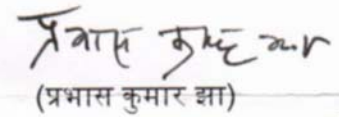 प्रभास कुमार झा
(प्रभास कुमार झा)